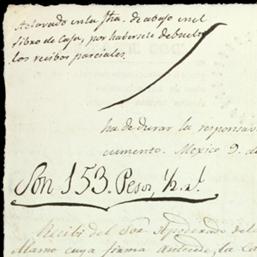 Aclarado en la fha. de abajo en el
libro de Caja, por haberse debuelto
los recibos parciales.
ha de durar la responsav
cumento. Mexico 9. de
Son 153. Pesos, ½ rl.
Recibi del Sor. Apoderado del
Alamo cuya firma antecede la Ca